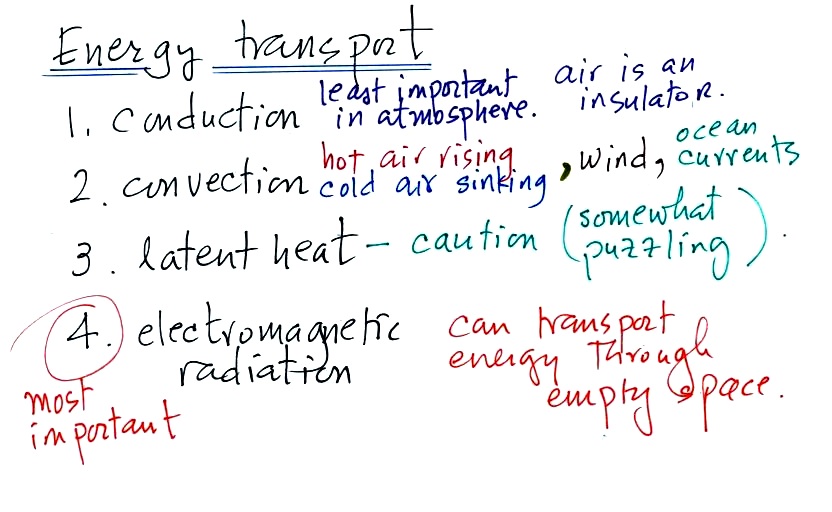 Energy transport
1. Conduction least important in atmosphere. air is an insulator.
2. convection hot air rising cold air sinking, wind, ocean currents
3. latent heat - caution (somewhat puzzling).
4. electromagnetic radiation
most important
can transport energy through empty space.